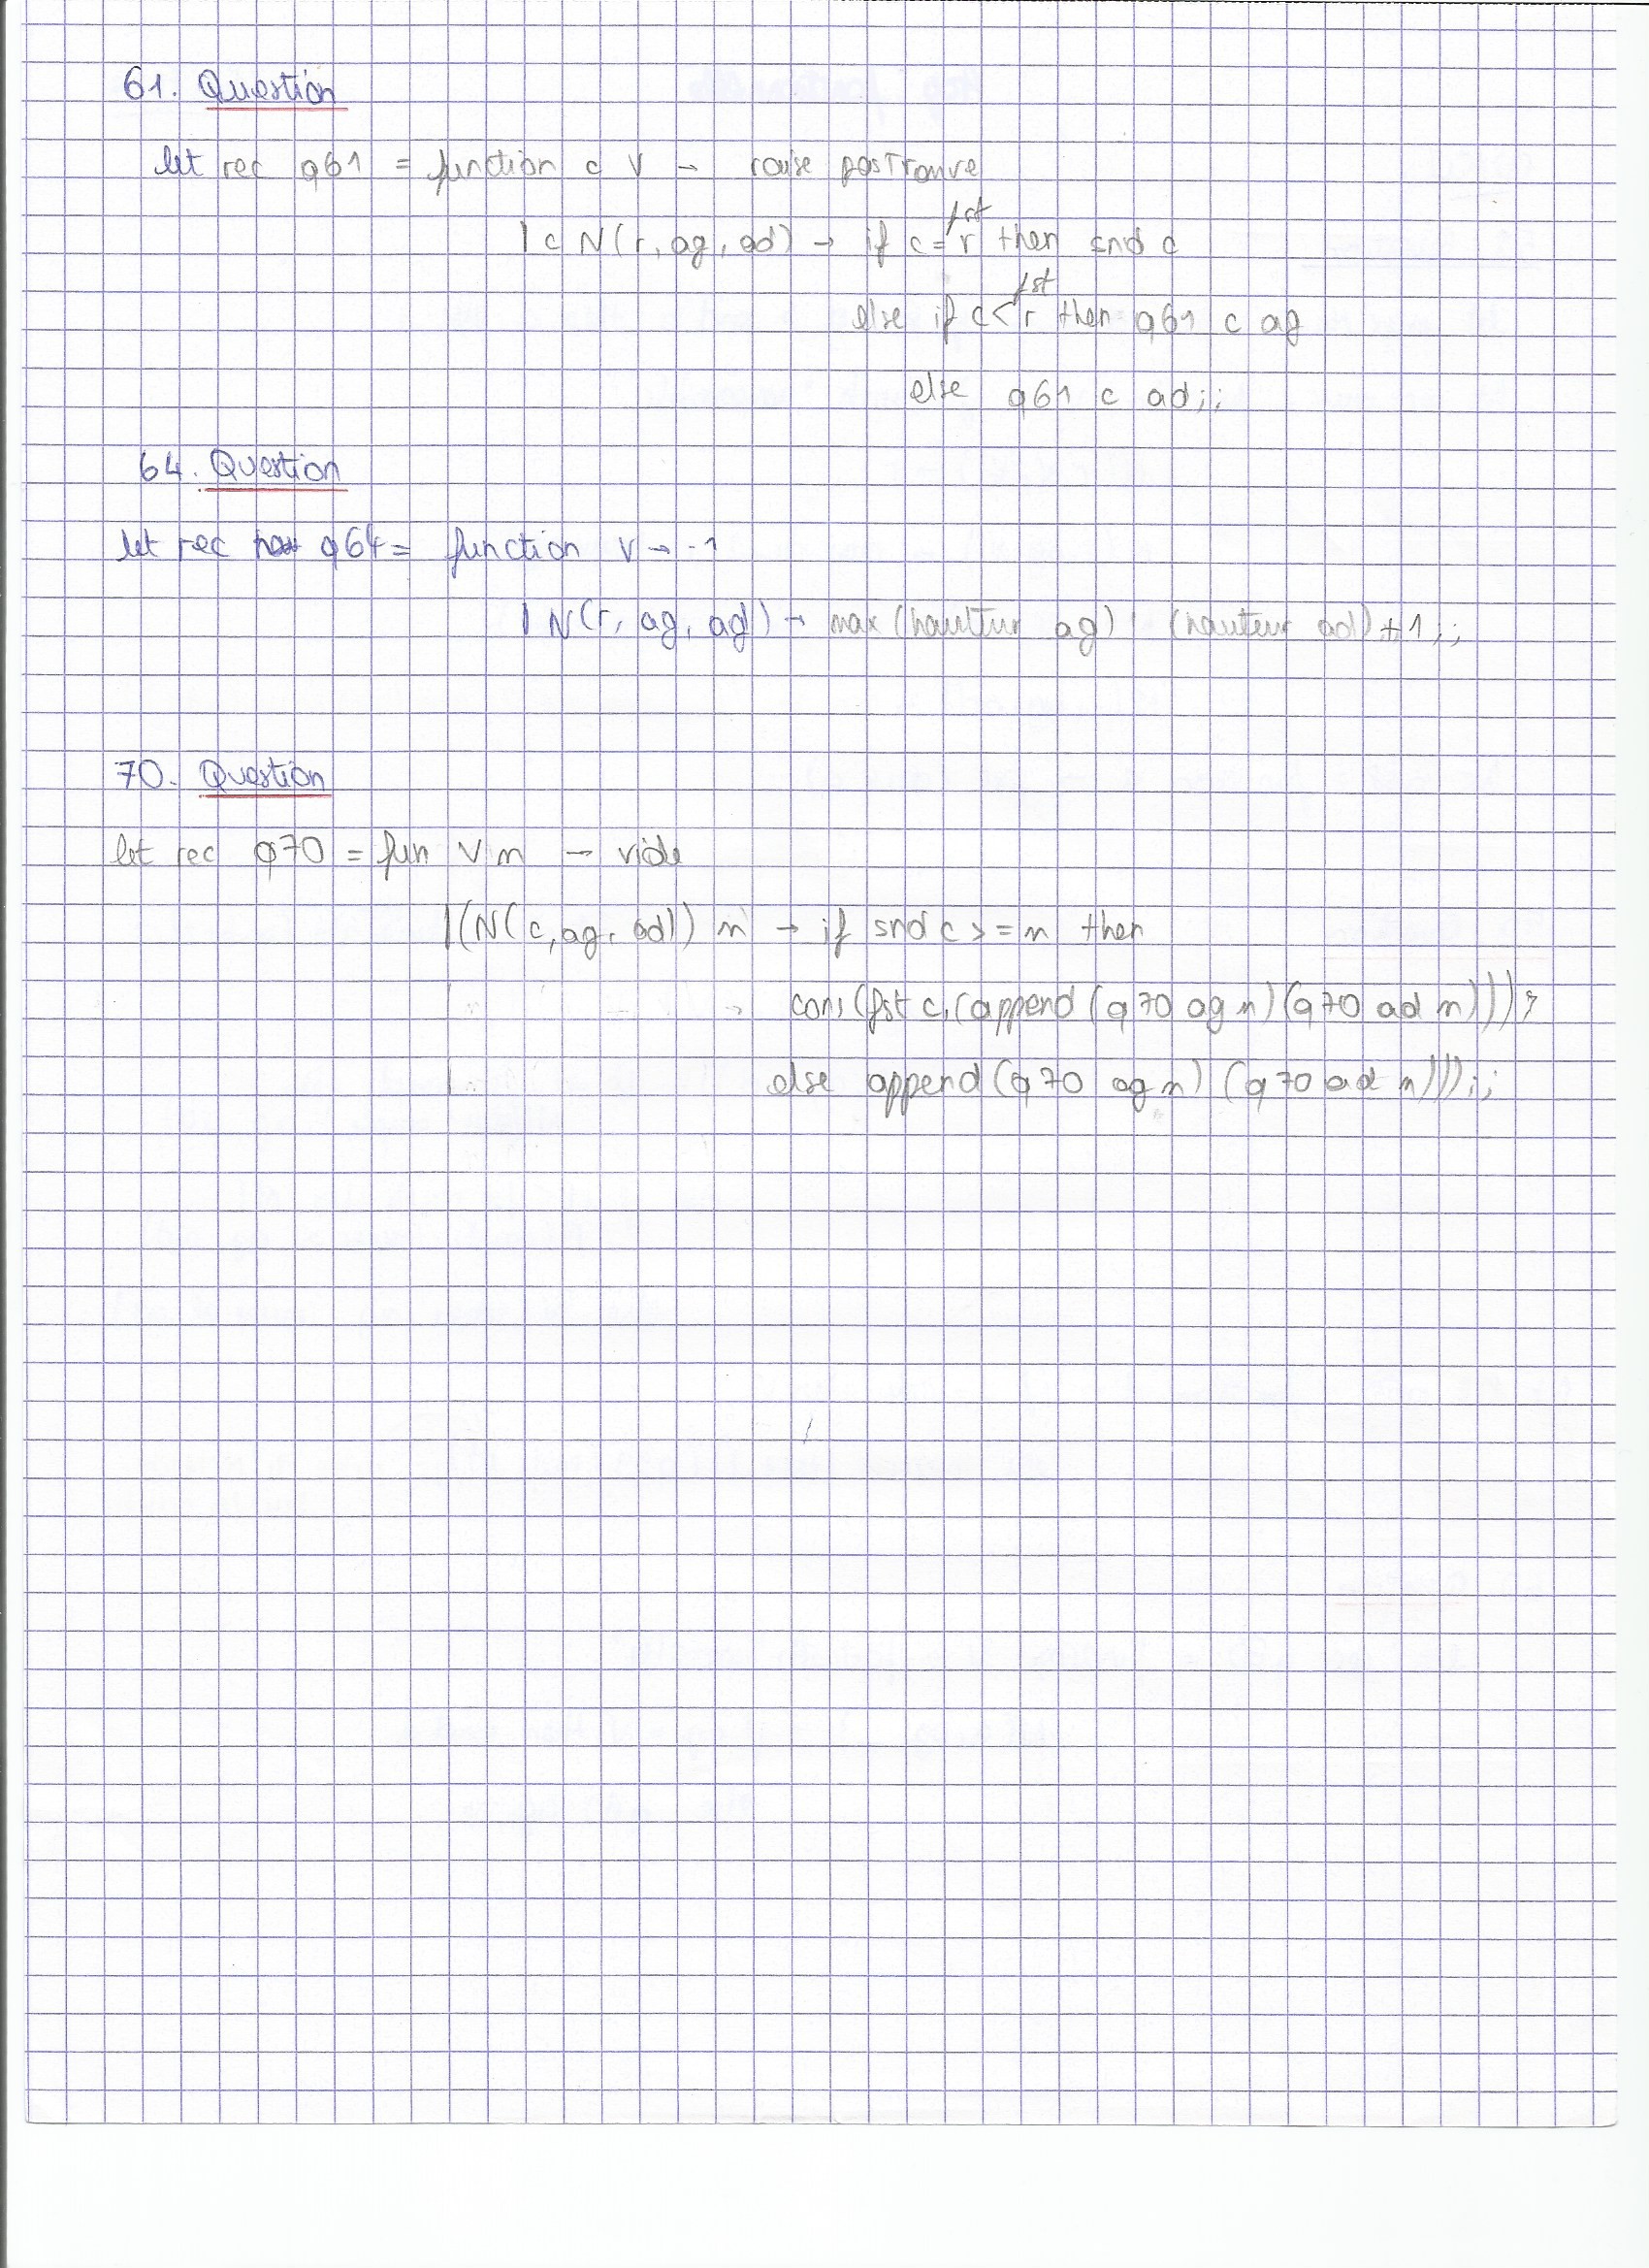 61. Question
let rec q61 = function c V → raise pasTrouve
| c N(r, ag, ad) → if c = fst r then snd c
else if c < fst r then q61 c ag
else q61 c ad;;
64. Question
let rec q64 = function V → -1
| N(r, ag, ad) → max (hauteur ag) (hauteur ad) + 1;;
70. Question
let rec q70 = fun V n → vide
|(N(c, ag, ad)) n → if snd c >= n then
cons (fst c, (append (q70 ag n) (q70 ad n))))
else append (q70 ag n) (q70 ad n)));;